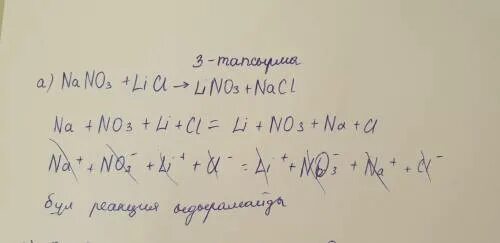 3-тапсырма
а) NaNO₃ + LiCl → LiNO₃ + NaCl
Na + NO₃ + Li + Cl = Li + NO₃ + Na + Cl
Na⁺ + NO₃⁻ + Li⁺ + Cl⁻ = Li⁺ + NO₃⁻ + Na⁺ + Cl⁻
бул реакция